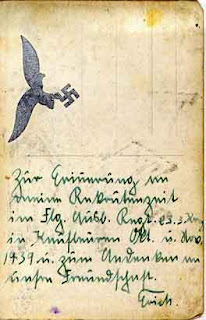 Zur Erinnerung an
meine Rekrutenzeit
im Flg. Ausb. Regt. 23.
in Kaufbeuren Okt. u. Nov.
1939 u. zum Andenken an
unsere Freundschaft.
Erich.